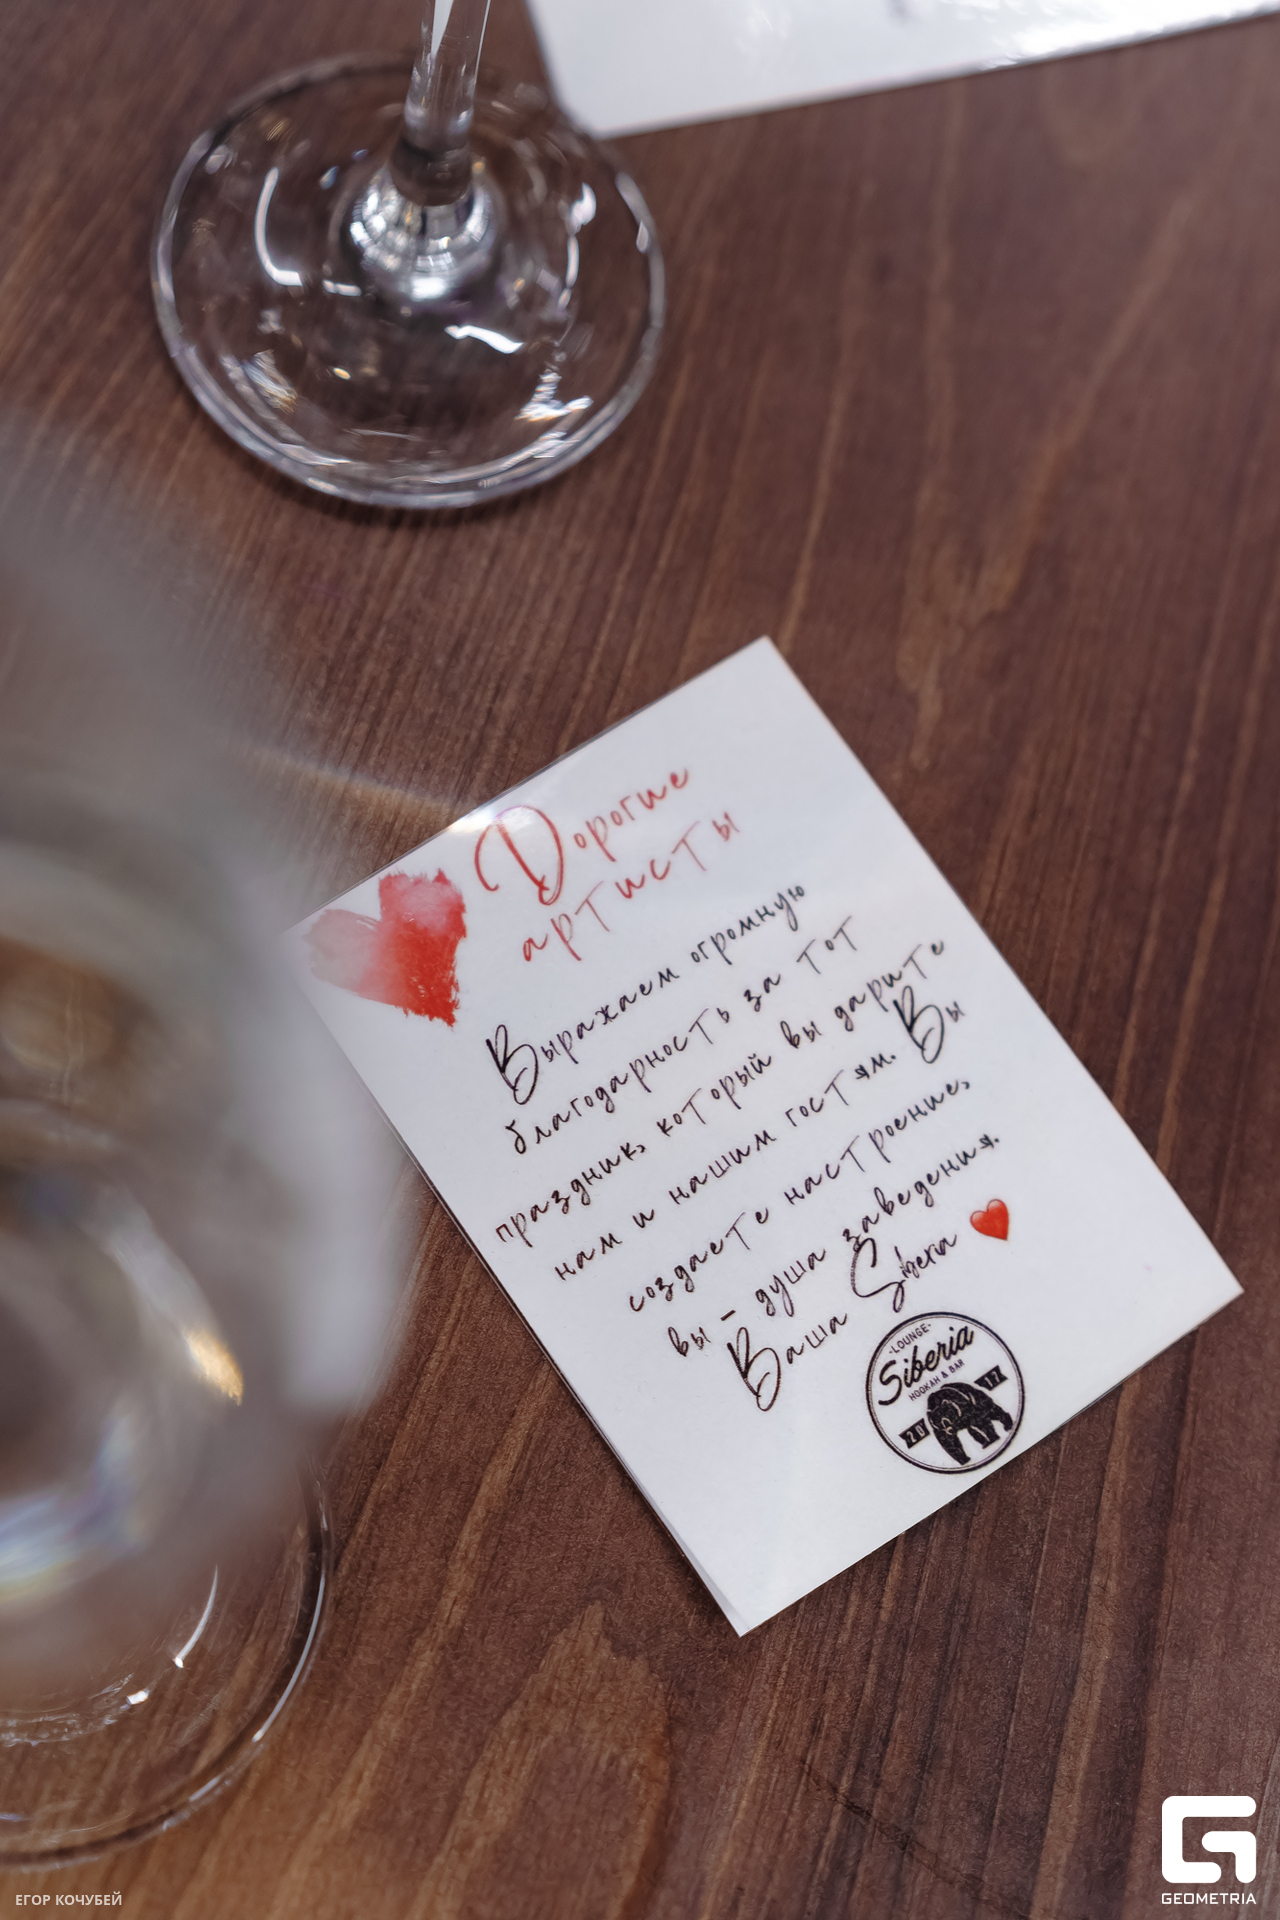 Дорогие
артисты
Выражаем огромную
благодарность за тот
праздник, который вы дарите
нам и нашим гостям. Вы
создаете настроение,
вы - душа заведения.
Ваша Siberia ❤️
·LOUNGE·
Siberia
HOOKAH & BAR
20 17
ЕГОР КОЧУБЕЙ
GEOMETRIA